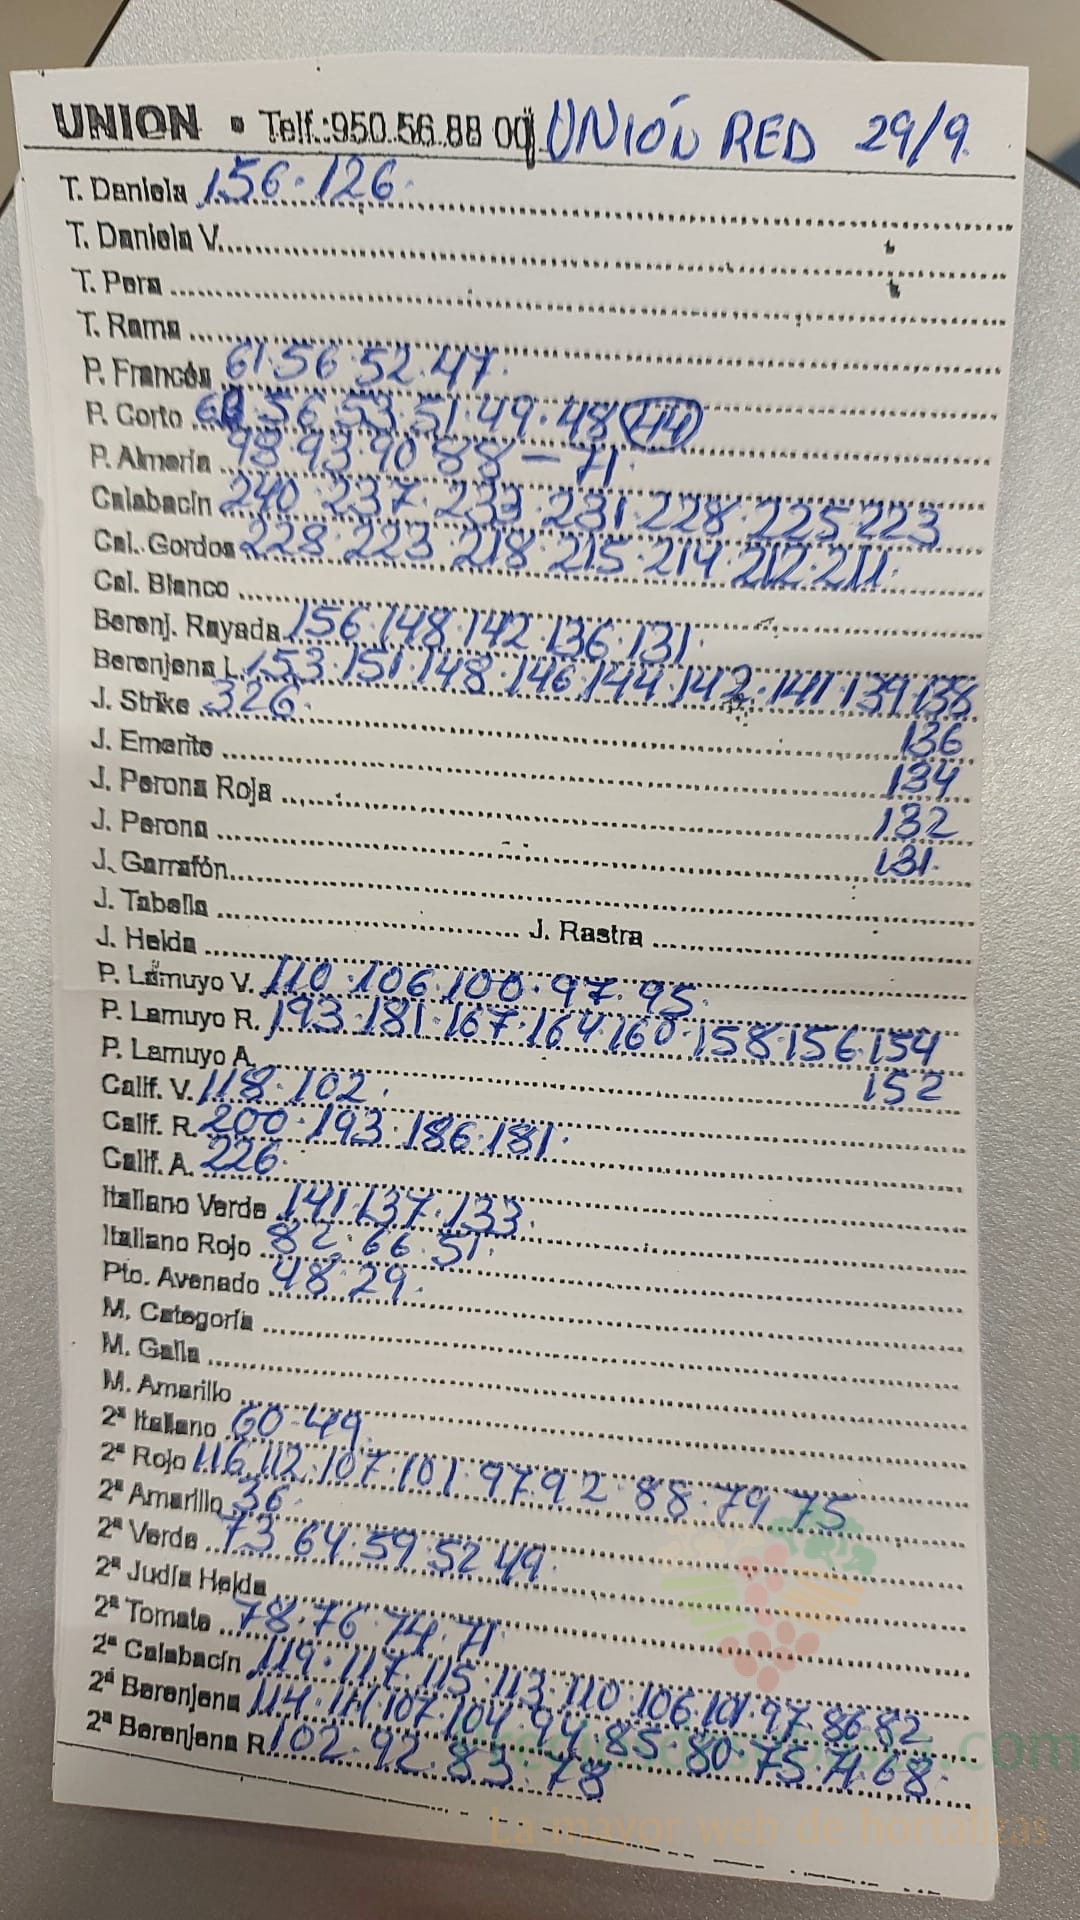 UNION • Telf.:950.56.88 00 UNIÓN RED 29/9.
T. Daniela 156. 126.
T. Daniela V.
T. Pera
T. Rama
P. Francés 61. 56. 52. 47.
P. Corto 56. 53. 51. 49. 48 (44)
P. Almería 98. 93. 90 88 - 71.
Calabacín 240. 237. 233. 231. 228. 225 223
Cal. Gordos 228. 223. 218. 215. 214. 212. 211.
Cal. Blanco
Berenj. Rayada 156. 148. 142. 136. 131.
Berenjena L. 153. 151. 148. 146. 144. 142. 141 139. 138
J. Strike 326. 136
J. Emerite 134
J. Perona Roja 132
J. Perona 131.
J. Garrafón
J. Tabella J. Rastra
J. Helda
P. Lamuyo V. 110. 106. 100. 97. 95.
P. Lamuyo R. 193. 181. 167. 164. 160. 158. 156. 154
P. Lamuyo A. 152
Calif. V. 118. 102.
Calif. R. 200. 193. 186. 181.
Calif. A. 226.
Italiano Verde 141. 137. 133.
Italiano Rojo 82. 66. 51.
Pto. Avenado 48. 29.
M. Categoría
M. Galia
M. Amarillo
2ª Italiano 60-49.
2ª Rojo 116. 112. 107. 101. 97. 92. 88. 79. 75
2ª Amarillo 36.
2ª Verde 73 64. 59. 52. 49.
2ª Judía Helda
2ª Tomate 78. 76. 74. 71.
2ª Calabacín 119. 117. 115. 113. 110. 106. 101. 97. 86. 82
2ª Berenjena 114. 111. 107. 104. 94. 85. 80. 75. 71. 68.
2ª Berenjena R. 102. 92. 83. 78
La mayor web de hortalizas